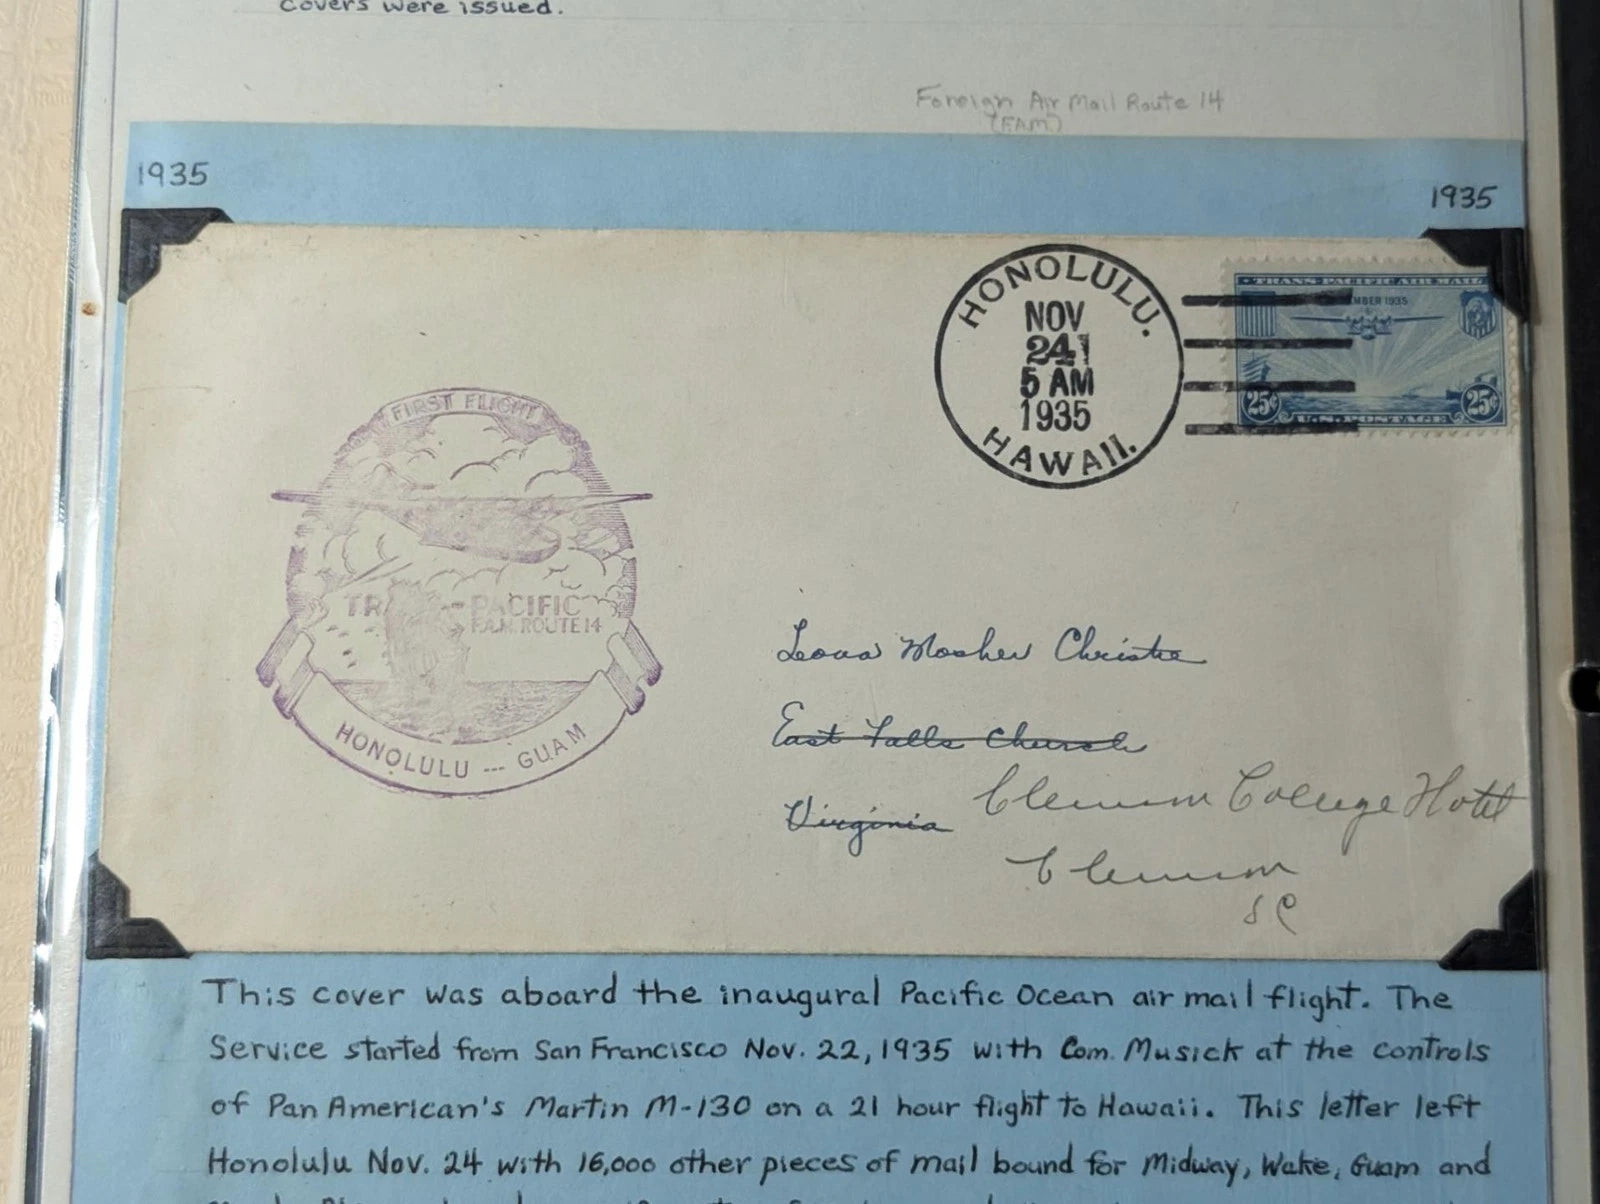 covers were issued.
Foreign Air Mail Route 14
(F.A.M.)
1935
1935
HONOLULU.
NOV
24
5 AM
1935
HAWAII.
TRANS-PACIFIC AIR MAIL
NOVEMBER 1935
25¢
U.S. POSTAGE
25¢
FIRST FLIGHT
PACIFIC
F.A.M. ROUTE 14
HONOLULU --- GUAM
Leona Mosher Christie
East Falls Church
Virginia
Clemson College Hotel
Clemson
SC
This cover was aboard the inaugural Pacific Ocean air mail flight. The
Service started from San Francisco Nov. 22, 1935 with Com. Musick at the controls
of Pan American's Martin M-130 on a 21 hour flight to Hawaii. This letter left
Honolulu Nov. 24 with 16,000 other pieces of mail bound for Midway, Wake, Guam and